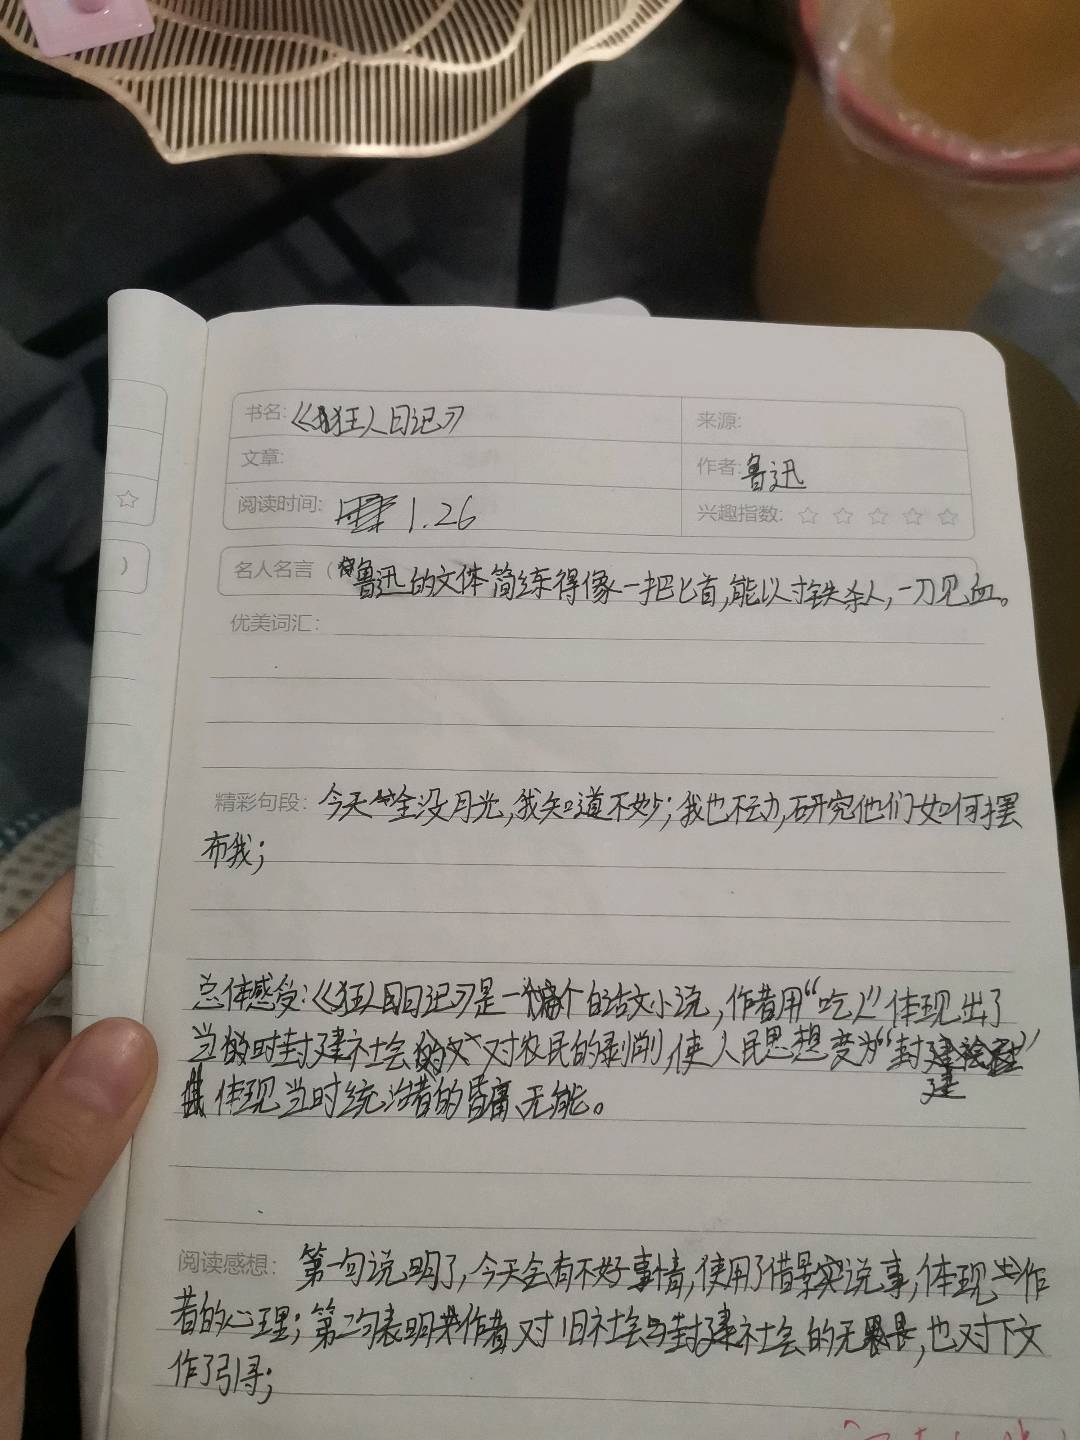 书名:《狂人日记》
来源:
文章:
作者:鲁迅
阅读时间: 1.26
兴趣指数: ☆ ☆ ☆ ☆ ☆
名人名言（ 鲁迅的文体简练得像一把匕首,能以寸铁杀人,一刀见血。
优美词汇:
精彩句段: 今天全没月光,我知道不妙;我也不动,研究他们如何摆
布我;
总体感受:《狂人日记》是一个白话文小说,作者用“吃人”体现出了
当时封建社会对农民的剥削,使人民思想变为“封建
体现当时统治者的昏庸、无能。
阅读感想: 第一句说明了,今天会有不好事情,使用了借景说事,体现作
者的心理;第二句表明作者对旧社会与封建社会的无畏,也对下文
作了引导;
☆
)